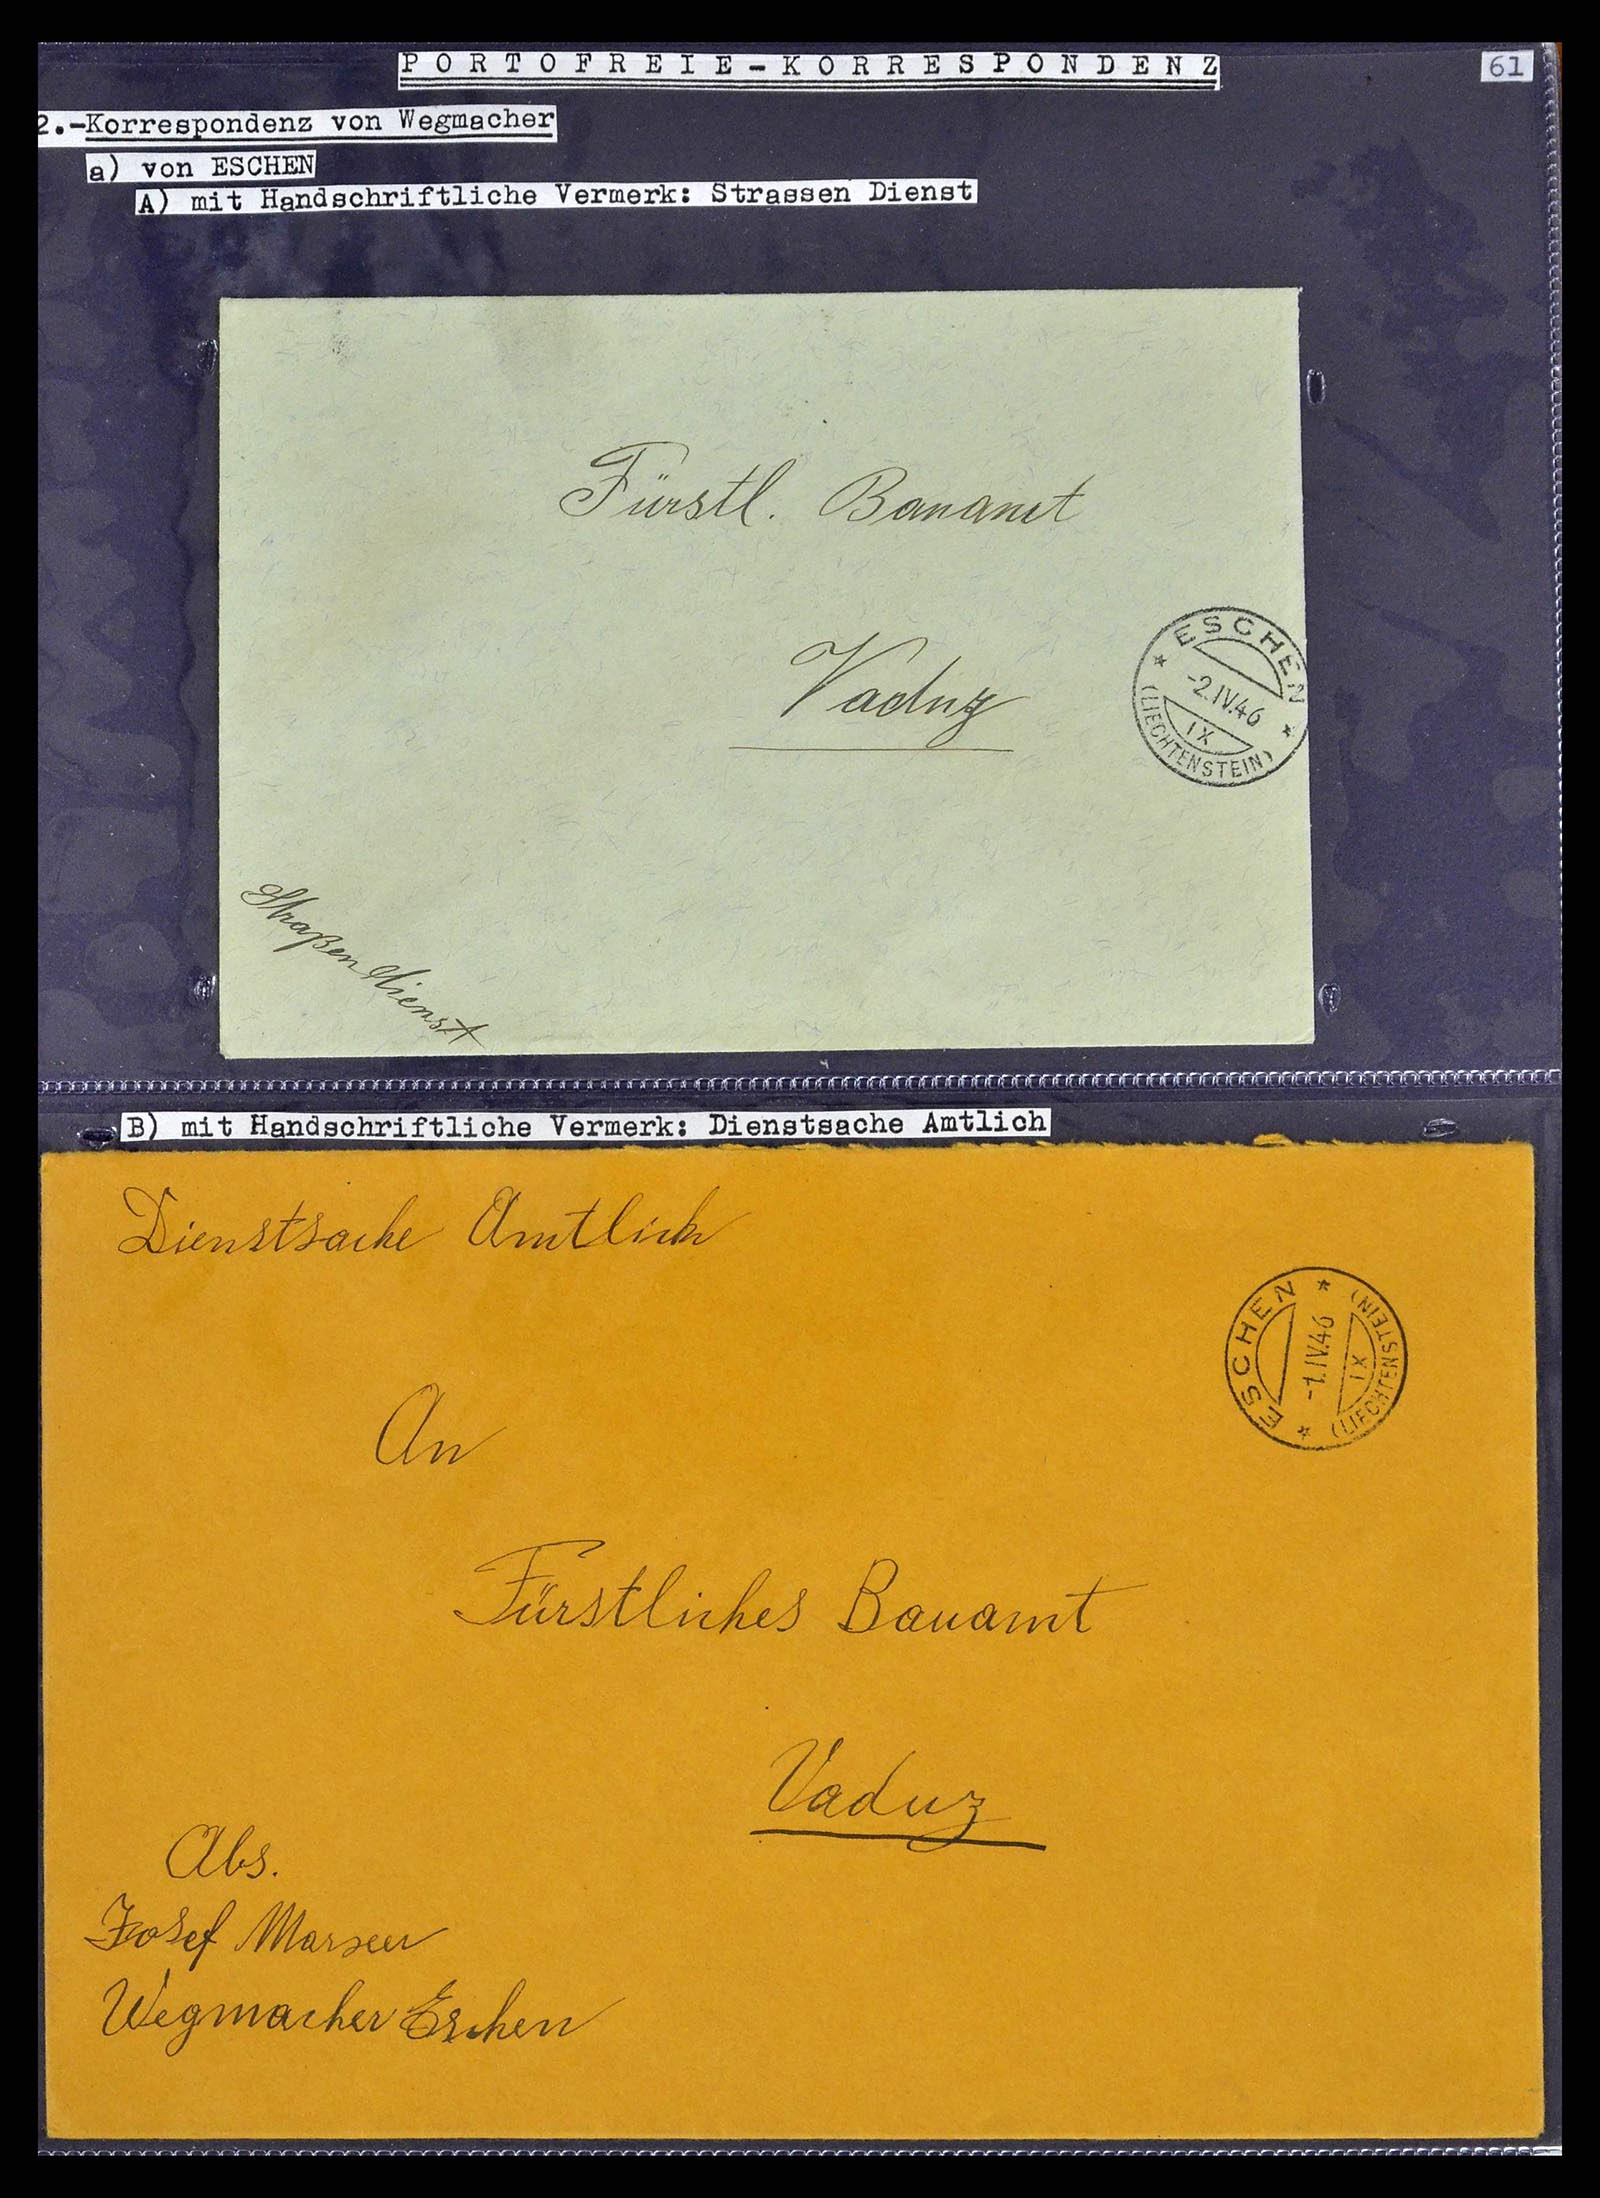 PORTOFREIE-KORRESPONDENZ
61
2.-Korrespondenz von Wegmacher
a) von ESCHEN
A) mit Handschriftliche Vermerk: Strassen Dienst
Fürstl. Bauamt
Vaduz
ESCHEN
-2.IV.46
IX
(LIECHTENSTEIN)
Straßen Dienst
B) mit Handschriftliche Vermerk: Dienstsache Amtlich
Dienstsache Amtlich
ESCHEN
-1.IV.46
IX
(LIECHTENSTEIN)
An
Fürstliches Bauamt
Vaduz
Abs.
Josef Marxer
Wegmacher Eschen